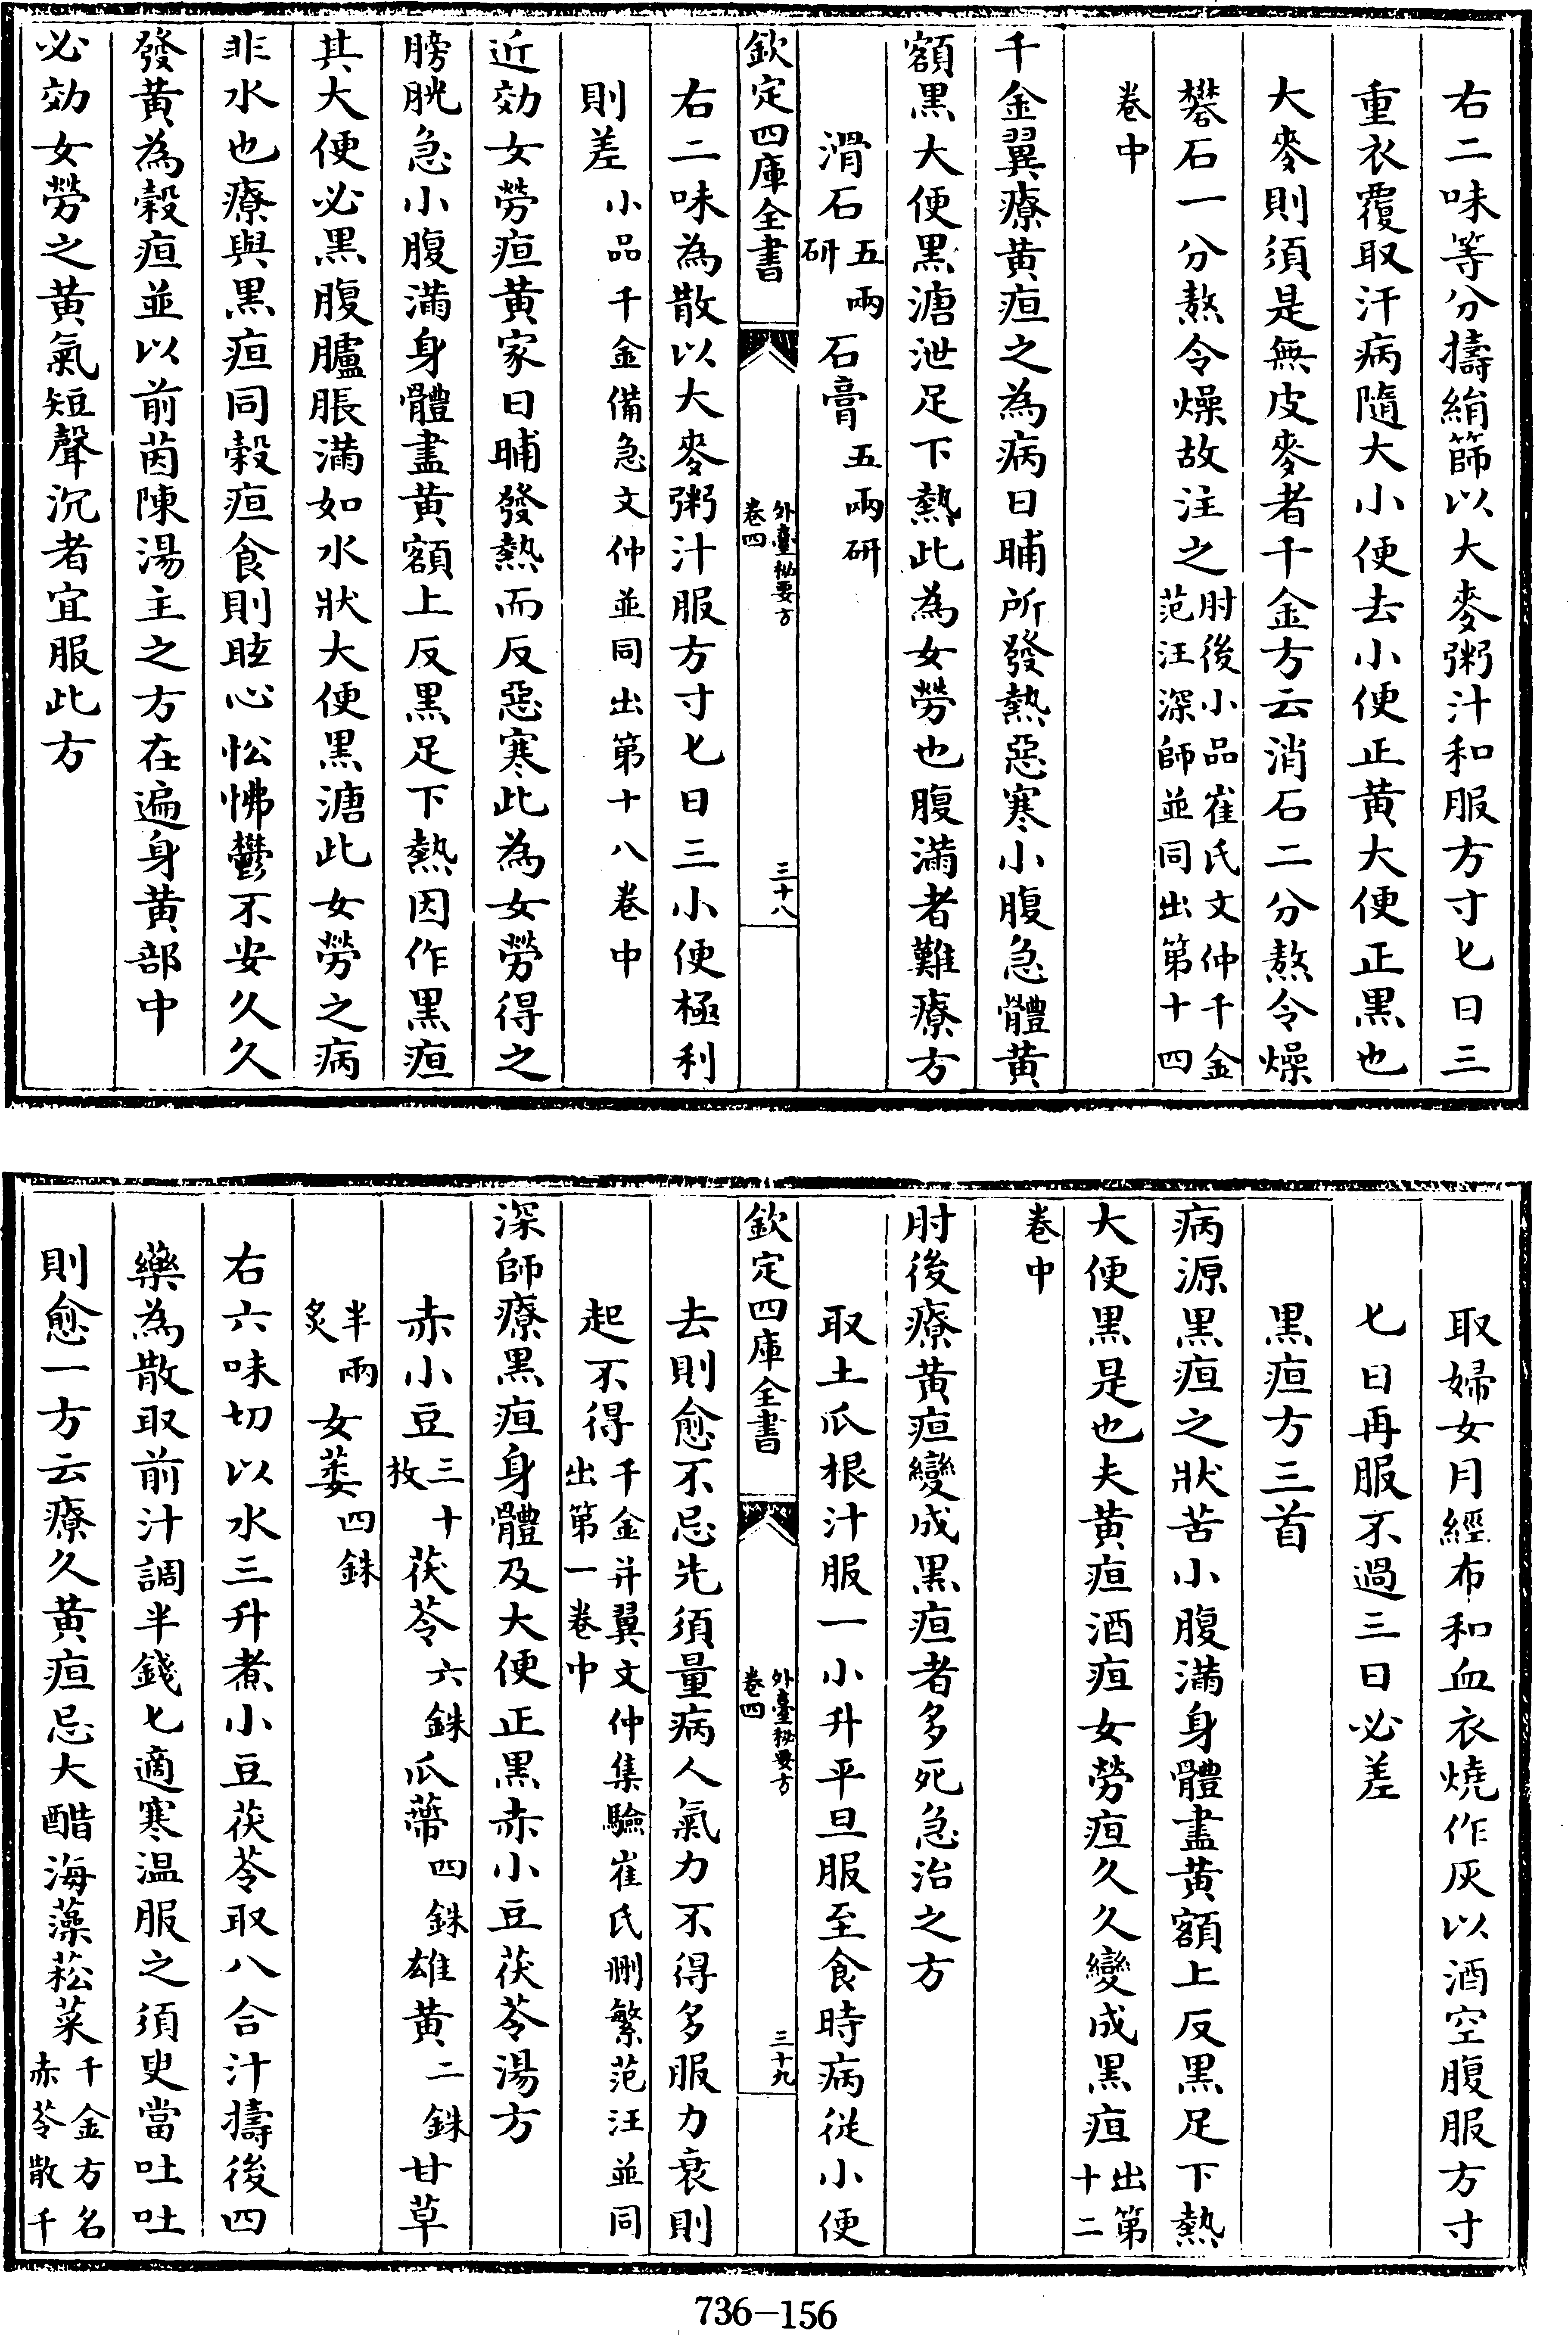 右二味等分擣絹篩以大麥粥汁和服方寸匕日三
重衣覆取汗病隨大小便去小便正黄大便正黒也
大麥則須是無皮麥者千金方云消石二分熬令燥
礬石一分熬令燥故注之肘後小品崔氏文仲千金范汪深師並同出第十四
卷中
千金翼療黄疸之為病日晡所發熱惡寒小腹急體黄
額黒大便黒溏泄足下熱此為女勞也腹滿者難療方
滑石五兩研 石膏五兩研
欽定四庫全書 外臺秘要方卷四 三十八
右二味為散以大麥粥汁服方寸匕日三小便極利
則差小品千金備急文仲並同出第十八卷中
近効女勞疸黄家日晡發熱而反惡寒此為女勞得之
膀胱急小腹滿身體盡黄額上反黒足下熱因作黒疸
其大便必黒腹臚脹滿如水狀大便黒溏此女勞之病
非水也療與黒疸同榖疸食則眩心忪怫鬱不安久久
發黄為榖疸並以前茵陳湯主之方在遍身黄部中
必効女勞之黄氣短聲沉者宜服此方
取婦女月經布和血衣燒作灰以酒空腹服方寸
匕日再服不過三日必差
黒疸方三首
病源黒疸之狀苦小腹滿身體盡黄額上反黒足下熱
大便黒是也夫黄疸酒疸女勞疸久久變成黒疸出第十二
卷中
肘後療黄疸變成黒疸者多死急治之方
取土瓜根汁服一小升平旦服至食時病從小便
欽定四庫全書 外臺秘要方卷四 三十九
去則愈不忌先須量病人氣力不得多服力衰則
起不得千金并翼文仲集驗崔氏刪繁范汪並同出第一卷中
深師療黒疸身體及大便正黒赤小豆茯苓湯方
赤小豆三十枚 茯苓六銖 瓜蔕四銖 雄黄二銖 甘草
半兩炙 女萎四銖
右六味切以水三升煮小豆茯苓取八合汁擣後四
藥為散取前汁調半錢匕適寒温服之須臾當吐吐
則愈一方云療久黄疸忌大醋海藻菘菜千金方名赤苓散千
736-156